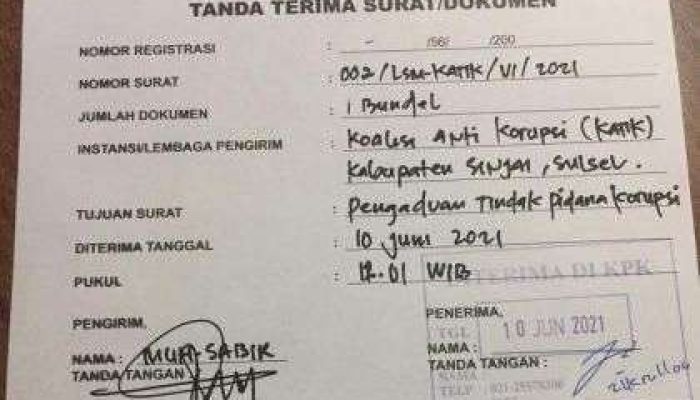 TANDA TERIMA SURAT/DOKUMEN
NOMOR REGISTRASI : - /56/ /200
NOMOR SURAT : 002/LSM-KATIK/VI/2021
JUMLAH DOKUMEN : 1 Bundel
INSTANSI/LEMBAGA PENGIRIM : Koalisi Anti Korupsi (KATIK)
Kabupaten SINJAI, SULSEL.
TUJUAN SURAT : Pengaduan Tindak pidana korupsi
DITERIMA TANGGAL : 10 Juni 2021
PUKUL : 12.01 WIB
DITERIMA DI KPK
PENGIRIM,
PENERIMA,
TGL 10 JUN 2021
NAMA : MUH. SABIR
NAMA :
TANDA TANGAN
TANDA TANGAN :
NAMA
TELP